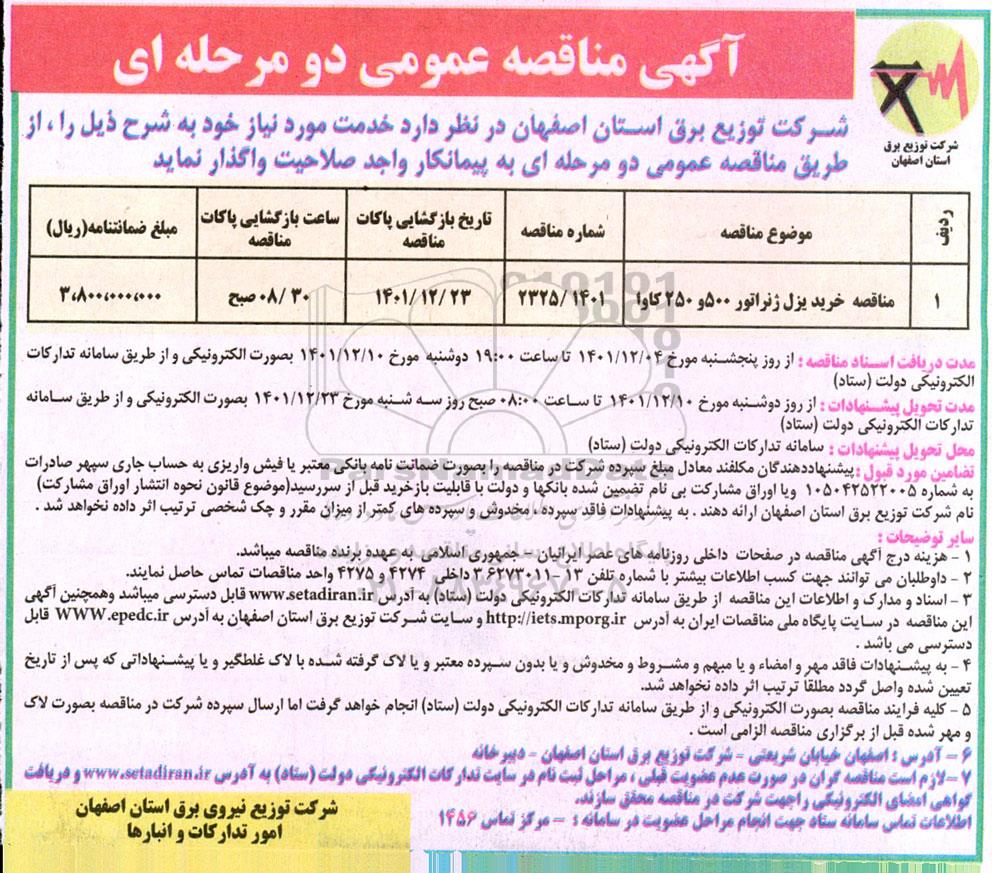 آگهی مناقصه عمومی دو مرحله ای
شرکت توزیع برق
استان اصفهان
شرکت توزیع برق استان اصفهان در نظر دارد خدمت مورد نیاز خود به شرح ذیل را، از
طریق مناقصه عمومی دو مرحله ای به پیمانکار واجد صلاحیت واگذار نماید
ردیف	موضوع مناقصه	شماره مناقصه	تاریخ بازگشایی پاکات مناقصه	ساعت بازگشایی پاکات مناقصه	مبلغ ضمانتنامه(ریال)
۱	مناقصه خرید یزل ژنراتور ۵۰۰و ۲۵۰ کاوا	۲۳۲۵/۱۴۰۱	۱۴۰۱/۱۲/۲۳	۰۸/۳۰ صبح	۳،۸۰۰،۰۰۰،۰۰۰
مدت دریافت اسناد مناقصه : از روز پنجشنبه مورخ ۱۴۰۱/۱۲/۰۴ تا ساعت ۱۹:۰۰ دوشنبه مورخ ۱۴۰۱/۱۲/۱۰ بصورت الکترونیکی و از طریق سامانه تدارکات
الکترونیکی دولت (ستاد)
مدت تحویل پیشنهادات : از روز دوشنبه مورخ ۱۴۰۱/۱۲/۱۰ تا ساعت ۰۸:۰۰ صبح روز سه شنبه مورخ ۱۴۰۱/۱۲/۲۳ بصورت الکترونیکی و از طریق سامانه
تدارکات الکترونیکی دولت (ستاد)
محل تحویل پیشنهادات : سامانه تدارکات الکترونیکی دولت (ستاد)
تضامین مورد قبول : پیشنهاددهندگان مکلفند معادل مبلغ سپرده شرکت در مناقصه را بصورت ضمانت نامه بانکی معتبر یا فیش واریزی به حساب جاری سپهر صادرات
به شماره ۰۱۰۵۰۴۲۵۲۲۰۰۵ ویا اوراق مشارکت بی نام تضمین شده بانکها و دولت با قابلیت بازخرید قبل از سررسید(موضوع قانون نحوه انتشار اوراق مشارکت)
نام شرکت توزیع برق استان اصفهان ارائه دهند . به پیشنهادات فاقد سپرده ، مخدوش و سپرده های کمتر از میزان مقرر و چک شخصی ترتیب اثر داده نخواهد شد .
سایر توضیحات :
۱ - هزینه درج آگهی مناقصه در صفحات داخلی روزنامه های عصر ایرانیان - جمهوری اسلامی به عهده برنده مناقصه میباشد.
۲ - داوطلبان می توانند جهت کسب اطلاعات بیشتر با شماره تلفن ۱۳-۳۶۲۷۳۰۱۱ داخلی ۴۲۷۴ و ۴۲۷۵ واحد مناقصات تماس حاصل نمایند.
۳ - اسناد و مدارک و اطلاعات این مناقصه از طریق سامانه تدارکات الکترونیکی دولت (ستاد) به آدرس www.setadiran.ir قابل دسترسی میباشد وهمچنین آگهی
این مناقصه در سایت پایگاه ملی مناقصات ایران به آدرس http://iets.mporg.ir و سایت شرکت توزیع برق استان اصفهان به آدرس WWW.epedc.ir قابل
دسترسی می باشد .
۴ - به پیشنهادات فاقد مهر و امضاء و یا مبهم و مشروط و مخدوش و یا بدون سپرده معتبر و یا لاک گرفته شده با لاک غلطگیر و یا پیشنهاداتی که پس از تاریخ
تعیین شده واصل گردد مطلقا ترتیب اثر داده نخواهد شد.
۵ - کلیه فرایند مناقصه بصورت الکترونیکی و از طریق سامانه تدارکات الکترونیکی دولت (ستاد) انجام خواهد گرفت اما ارسال سپرده شرکت در مناقصه بصورت لاک
و مهر شده قبل از برگزاری مناقصه الزامی است .
۶ - آدرس : اصفهان خیابان شریعتی - شرکت توزیع برق استان اصفهان - دبیرخانه
۷ - لازم است مناقصه گران در صورت عدم عضویت قبلی ، مراحل ثبت نام در سایت تدارکات الکترونیکی دولت (ستاد) به آدرس www.setadiran.ir و دریافت
گواهی امضای الکترونیکی راجهت شرکت در مناقصه محقق سازند.
اطلاعات تماس سامانه ستاد جهت انجام مراحل عضویت در سامانه : - مرکز تماس ۱۴۵۶
شرکت توزیع نیروی برق استان اصفهان
امور تدارکات و انبارها
ParsNamadData